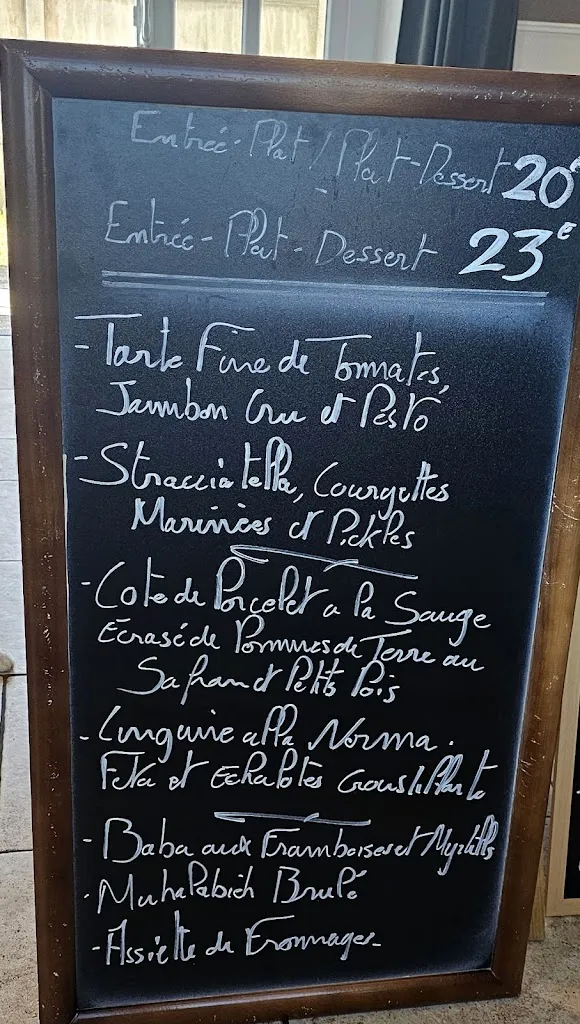 Entrée-Plat / Plat-Dessert 20€
Entrée-Plat-Dessert 23€
- Tarte Fine de Tommates,
Jambon Cru et Pesto
- Stracciatella, Courgettes
Marinées et Pickles
- Cote de Porcelet a la Sauge
Ecrasé de Pommes de Terre au
Safran et Petits Pois
- Linguine alla Norma.
Feta et Echalotes Croustillante
- Baba aux Framboises et Myrtilles
- Muhalabieh Brulé
- Assiette de Frommages